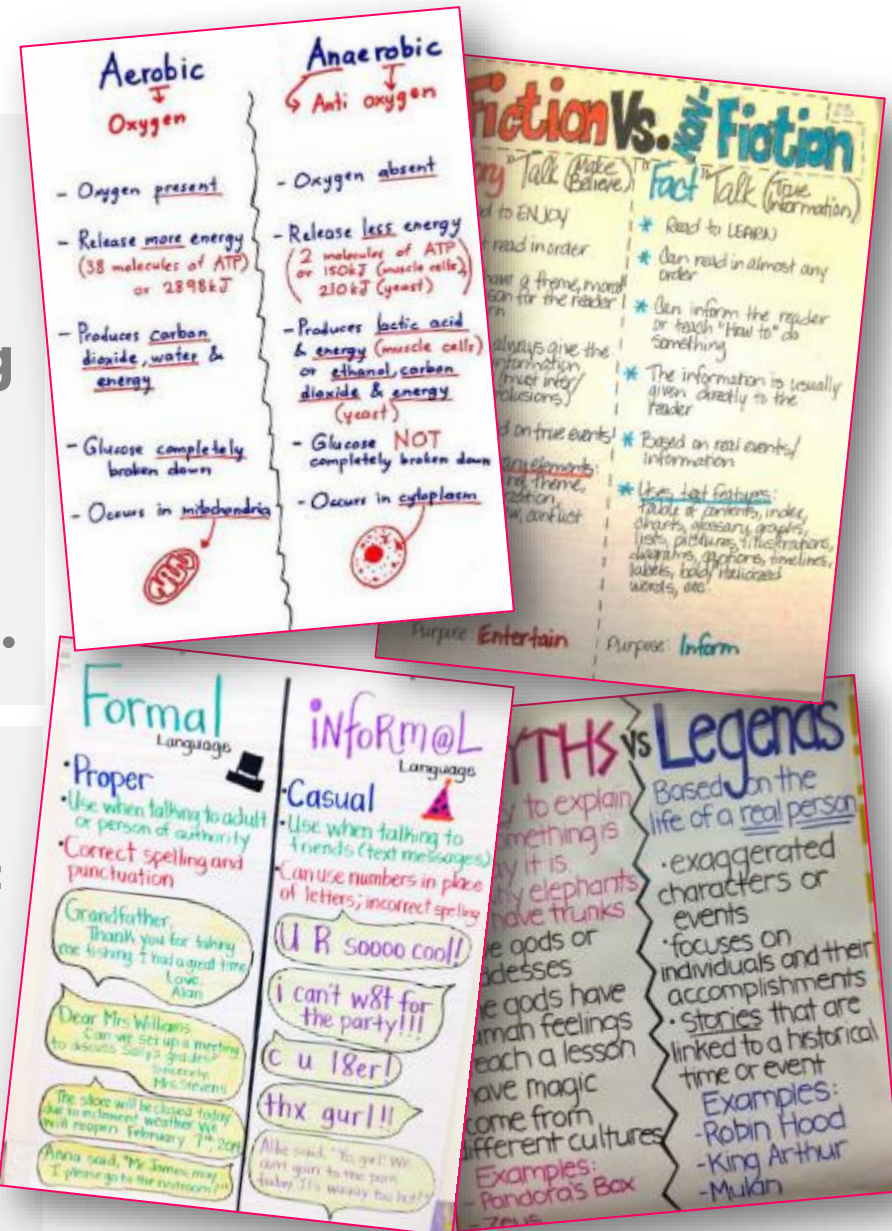 Aerobic
Oxygen
- Oxygen present
- Release more energy
(38 molecules of ATP)
or 2898kJ
- Produces carbon
dioxide, water &
energy
- Glucose completely
broken down
- Occurs in mitochondria
Anaerobic
Anti oxygen
- Oxygen absent
- Release less energy
(2 molecules of ATP
or 150kJ (muscle cells),
210kJ (yeast))
- Produces lactic acid
& energy (muscle cells)
or ethanol, carbon
dioxide & energy
(yeast)
- Glucose NOT
completely broken down
- Occurs in cytoplasm
Fiction Vs. Non-Fiction
Talk (Make
Believe)
to ENJOY
read in order
have a theme, moral
son for the reader
always give the
information
(must infer/
clusions)
on true events!
elements:
theme,
conflict
Purpose: Entertain
"Fact" Talk (True
Information)
* Read to LEARN
* Can read in almost any
order
* Can inform the reader
or teach "How to" do
something
* The information is usually
given directly to the
reader
* Based on real events/
information
* Uses text features:
table of contents, index,
charts, glossary, graphs,
lists, pictures, illustrations,
diagrams, captions, timelines,
labels, bold/italicized
words, etc.
Purpose: Inform
g
.
Formal
Language
•Proper
•Use when talking to adult
or person of authority
•Correct spelling and
punctuation
Grandfather,
Thank you for taking
me fishing. I had a great time
Love,
Alan
Dear Mrs Williams
Can we set up a meeting
to discuss Sally's grades?
Sincerely,
Mrs Stevens
The store will be closed today
due to inclement weather. We
will reopen February 7th,
Anna said, "Mr James, may
I please go to the restroom?"
iNfoRm@L
Language
•Casual
•Use when talking to
friends (text messages)
•Can use numbers in place
of letters; incorrect spelling
U R soooo cool!
i can't w8t for
the party!!!
c u l8er!
thx gurl!!
said, "Yo, girl! We
ain't goin to the park
today. It's waaay too hot!"
YTHS vs Legends
to explain
mething is
y it is
hy elephants
have trunks
e gods or
ddesses
e gods have
uman feelings
each a lesson
ave magic
come from
ifferent cultures
Examples:
- Pandora's Box
- Zeus
Based on the
life of a real person
•exaggerated
characters or
events
•focuses on
individuals and their
accomplishments
• stories that are
linked to a historical
time or event
Examples:
-Robin Hood
-King Arthur
-Mulan